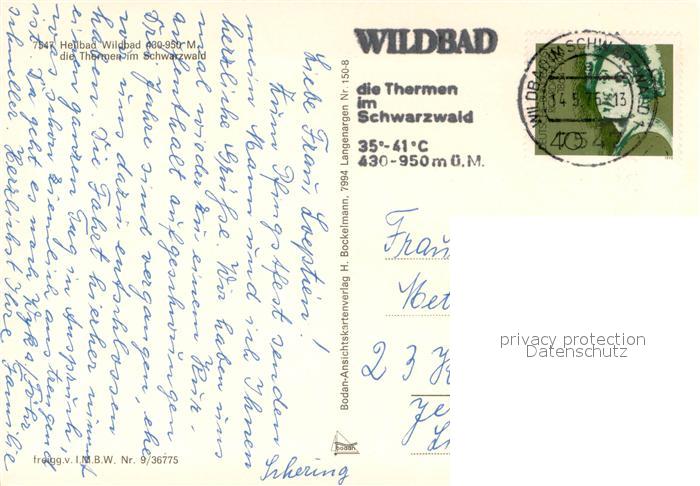 7547 Heilbad Wildbad 430-950 M.
die Thermen im Schwarzwald
Liebe Frau
Zum Pfingstfest senden
mein Mann und ich Ihnen
herzliche Grüße. Wir haben uns
mal wieder zu einem Kur-
aufenthalt aufgeschwungen
Drei Jahre sind vergangen, ehe
wir uns dazu entschlossen
haben. Die Fahrt hierher nimmt
einen ganzen Tag in Anspruch,
was schon ziemlich anstrengend
ist. Da geht es nach Wyk a/Föhr
schneller. Herzlichst Ihre Familie
Schering
freigg.v. I.M.B.W. Nr. 9/36775
Bodan-Ansichtskartenverlag H. Bockelmann, 7994 Langenargen Nr. 150-8
bodan
WILDBAD
die Thermen
im
Schwarzwald
35°-41°C
430-950 m ü. M.
WILDBAD IM SCHWARZWALD
40
Frau
2 3
privacy protection
Datenschutz